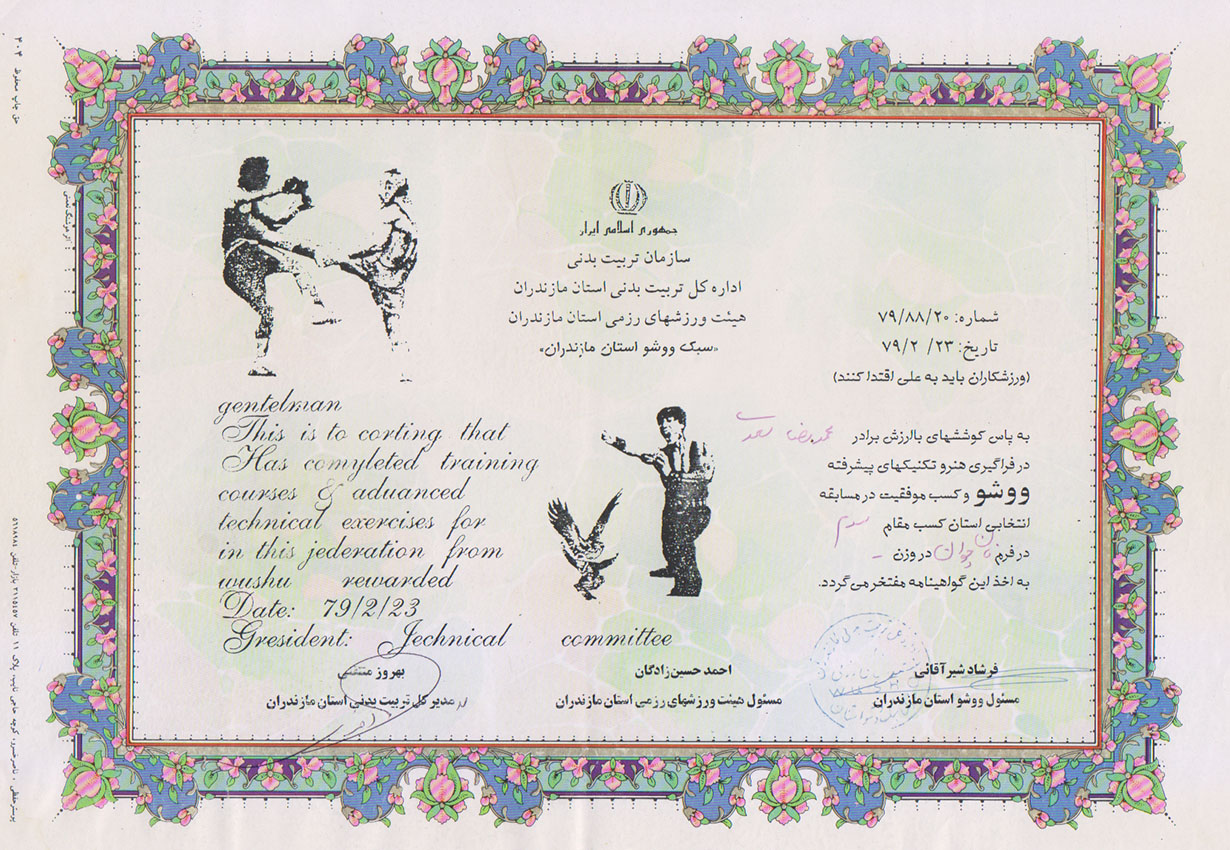 جمهوری اسلامی ایران
سازمان تربیت بدنی
اداره کل تربیت بدنی استان مازندران
هیئت ورزشهای رزمی استان مازندران
«سبک ووشو استان مازندران»
شماره: ۷۹/۸۸/۲۰
تاریخ: ۲۳/ ۷۹/۲
(ورزشکاران باید به علی اقتدا کنند)
به پاس کوششهای باارزش برادر محمدرضا
در فراگیری هنر و تکنیکهای پیشرفته
ووشو و کسب موفقیت در مسابقه
انتخابی استان کسب مقام سوم
در فرم جوانان در وزن -
به اخذ این گواهینامه مفتخر می‌گردد.
gentelman
This is to corting that
Has comyleted training
courses & aduanced
technical exercises for
in this jederation from
wushu rewarded
Date: 79/2/23
Gresident: Jechnical committee
فرشاد شیرآقائی
مسئول ووشو استان مازندران
احمد حسین‌زادگان
مسئول هیئت ورزشهای رزمی استان مازندران
بهروز
مدیر کل تربیت بدنی استان مازندران
حق چاپ محفوظ ۴۰۴